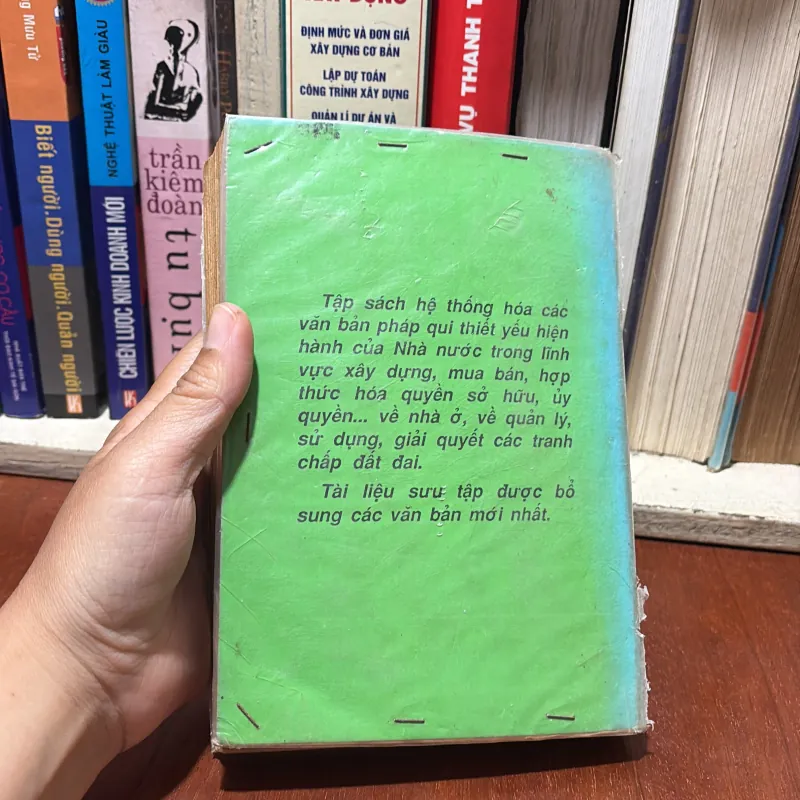 Mưu Tử
Biết người. Dùng người. Quản người
NGHỆ THUẬT LÀM GIÀU
CHIẾN LƯỢC KINH DOANH MỚI
trần
kiêm
đoàn
tu bụi
ĐỊNH MỨC VÀ ĐƠN GIÁ
XÂY DỰNG CƠ BẢN
LẬP DỰ TOÁN
CÔNG TRÌNH XÂY DỰNG
QUẢN LÍ DỰ ÁN VÀ
VỤ THANH
Tập sách hệ thống hóa các
văn bản pháp qui thiết yếu hiện
hành của Nhà nước trong lĩnh
vực xây dựng, mua bán, hợp
thức hóa quyền sở hữu, ủy
quyền... về nhà ở, về quản lý,
sử dụng, giải quyết các tranh
chấp đất đai.
Tài liệu sưu tập được bổ
sung các văn bản mới nhất.